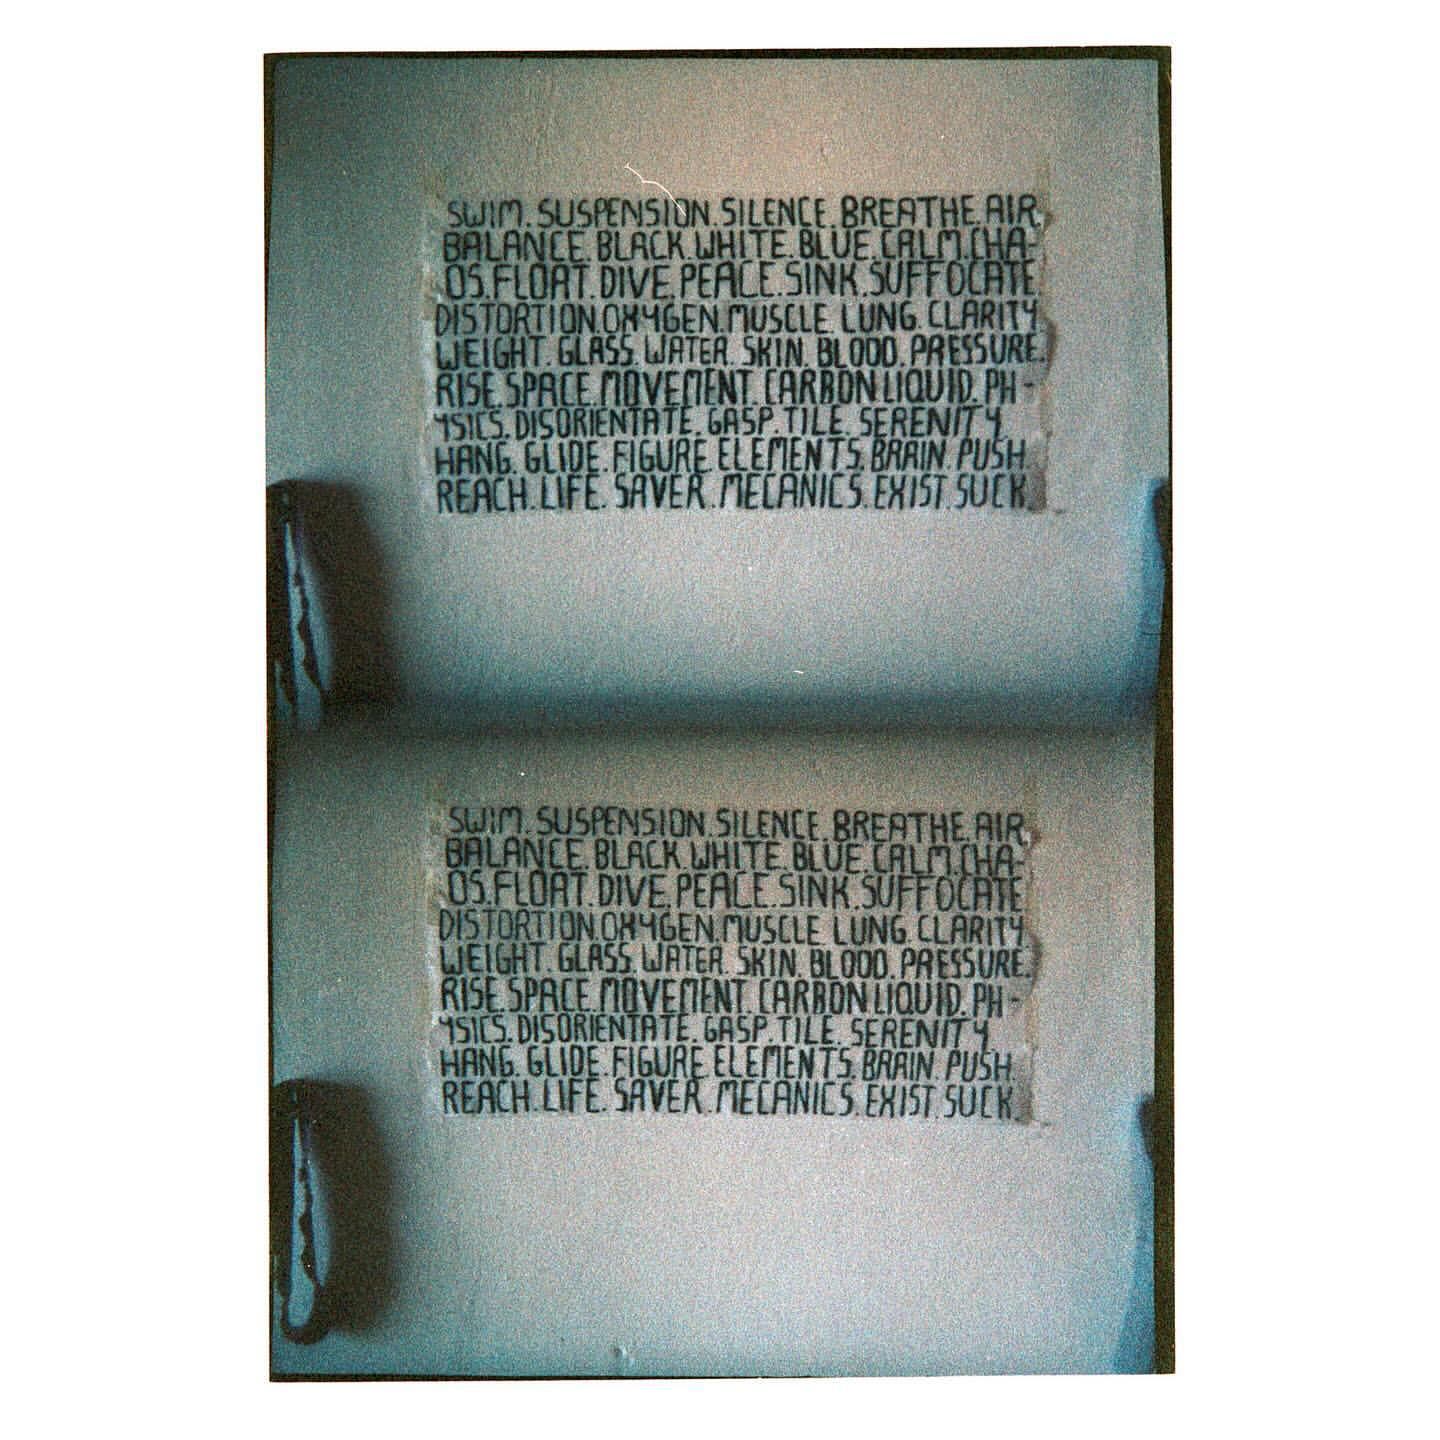 SWIM. SUSPENSION. SILENCE. BREATHE. AIR.
BALANCE. BLACK. WHITE. BLUE. CALM. CHA-
OS. FLOAT. DIVE. PEACE. SINK. SUFFOCATE
DISTORTION. OXYGEN. MUSCLE. LUNG. CLARITY
WEIGHT. GLASS. WATER. SKIN. BLOOD. PRESSURE.
RISE. SPACE. MOVEMENT. CARBON. LIQUID. PH-
YSICS. DISORIENTATE. GASP. TILE. SERENITY.
HANG. GLIDE. FIGURE. ELEMENTS. BRAIN. PUSH.
REACH. LIFE. SAVER. MECANICS. EXIST. SUCK.
SWIM. SUSPENSION. SILENCE. BREATHE. AIR.
BALANCE. BLACK. WHITE. BLUE. CALM. CHA-
OS. FLOAT. DIVE. PEACE. SINK. SUFFOCATE
DISTORTION. OXYGEN. MUSCLE. LUNG. CLARITY
WEIGHT. GLASS. WATER. SKIN. BLOOD. PRESSURE.
RISE. SPACE. MOVEMENT. CARBON. LIQUID. PH-
YSICS. DISORIENTATE. GASP. TILE. SERENITY.
HANG. GLIDE. FIGURE. ELEMENTS. BRAIN. PUSH.
REACH. LIFE. SAVER. MECANICS. EXIST. SUCK.